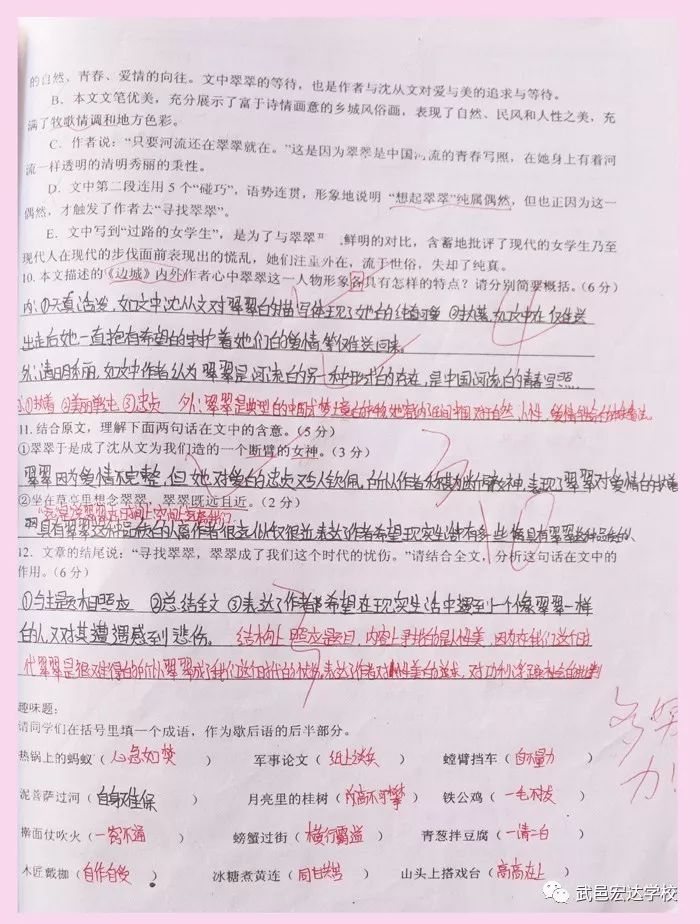 的自然、青春、爱情的向往。文中翠翠的等待，也是作者与沈从文对爱与美的追求与等待。
B．本文文笔优美，充分展示了富于诗情画意的乡城风俗画，表现了自然、民风和人性之美，充
满了牧歌情调和地方色彩。
C．作者说：“只要河流还在翠翠就在。”这是因为翠翠是中国河流的青春写照，在她身上有着河
流一样透明的清明秀丽的秉性。
D．文中第二段连用 5 个“碰巧”，语势连贯，形象地说明 “想起翠翠”纯属偶然，但也正因为这一
偶然，才触发了作者去“寻找翠翠”。
E．文中写到“过路的女学生”，是为了与翠翠 鲜明的对比，含蓄地批评了现代的女学生乃至
现代人在现代的步伐面前表现出的慌乱，她们注重外在，流于世俗，失却了纯真。
10. 本文描述的《边城》内外作者心中翠翠这一人物形象各具有怎样的特点？请分别简要概括。（6 分）
4
内：①天真活泼，如文中沈从文对翠翠的描写体现了她的纯真可爱 ②执着，如文中在傩送
出走后她一直抱有希望的守护着她们的爱情，等傩送回来。
外：清明秀丽，如文中作者认为翠翠是河流的另一种形式的存在，是中国河流的青春写照
③忠贞 外：翠翠是典型的中国式梦境
11. 结合原文，理解下面两句话在文中的含意。（5 分）
①翠翠于是成了沈从文为我们造的一个断臂的女神。（3 分）
翠翠因为爱情不完整，但她对爱的忠贞又令人钦佩，所以作者称她为断臂女神，表现了翠翠对爱情的执着
②坐在草亭里想念翠翠，翠翠既远且近。（2 分）
具有翠翠这种品质的人离作者很远似又很近，表达了作者希望现实生活有多些
12．文章的结尾说：“寻找翠翠，翠翠成了我们这个时代的忧伤。”请结合全文，分析这句话在文中的
作用。（6 分）
①与主题相照应 ②总结全文 ③表达了作者希望在现实生活中遇到一个像翠翠一样
的人，又对其遭遇感到悲伤。 结构上照应题目，内容上寻找的是人性美，因为在我们这个时
代翠翠是很难得的，所以翠翠成了我们这个时代的忧伤，表达作者对人性美的追求，对功利
趣味题：
请同学们在括号里填一个成语，作为歇后语的后半部分。
热锅上的蚂蚁（心急如焚） 军事论文（纸上谈兵） 螳臂挡车（自不量力）
泥菩萨过河（自身难保） 月亮里的桂树（高不可攀） 铁公鸡（一毛不拔）
擀面仗吹火（一窍不通） 螃蟹过街（横行霸道） 青葱拌豆腐（一清二白）
木匠戴枷（自作自受） 冰糖煮黄连（同甘共苦） 山头上搭戏台（高高在上）
多努力！
武邑宏达学校